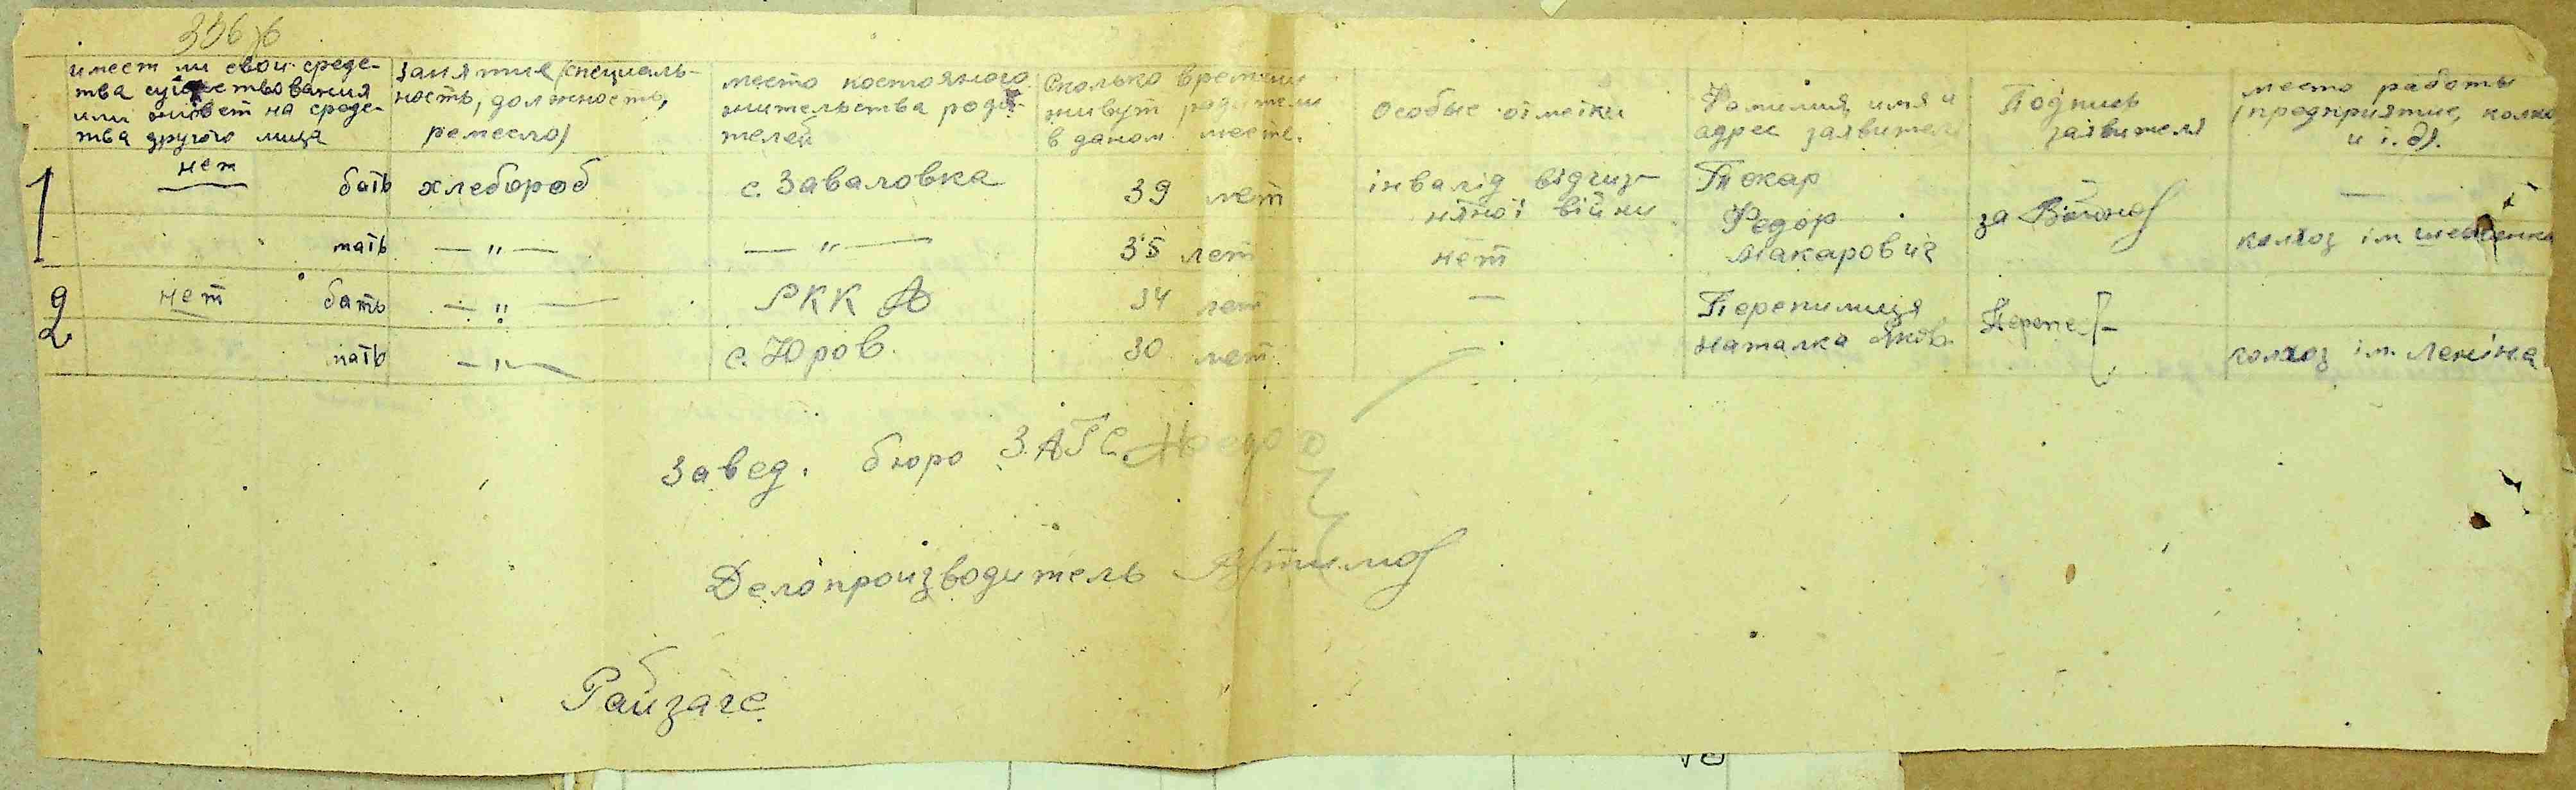 имеет ли свои средс-
тва существования
или живет на средс-
тва другого лица
занятие (специаль-
ность, должность,
ремесло)
место постоянного
жительства роди-
телей
Сколько времени
живут родители
в даном месте.
Особые отметки
Фамилия, имя и
адрес заявителя
Подпись
заявителя
место работы
(предприятие, колхо
и т.д).
1
нет
бать хлебороб с. Заваловка 39 лет
інвалід вітчиз-
няної війни
Токар
Федор
Макарович
за
—
мать — " — — " — 35 лет нет
колхоз ім Шевченка
2
нет бать — " — РККА 34 лет —
Перепилиця
Наталка Яков.
Перепе
мать — " — с. Юров. 30 лет. —
колхоз ім. Леніна
Завед. бюро ЗАГС
Делопроизводитель
Райзагс